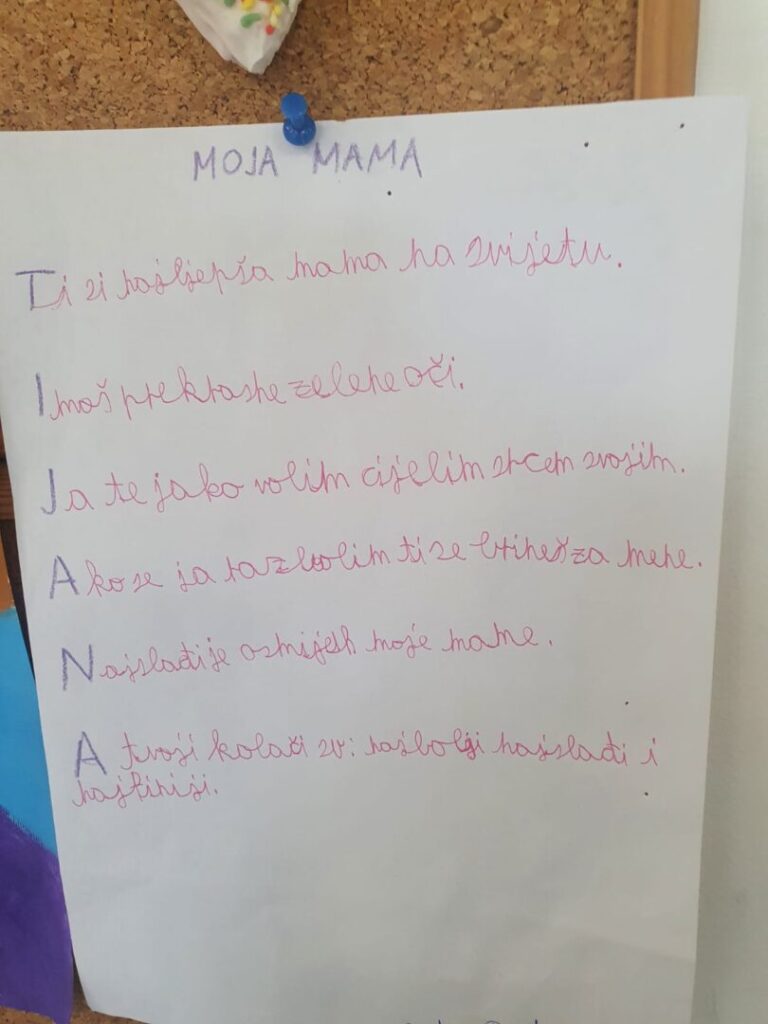 MOJA MAMA
Ti si najljepša mama na svijetu.
Imaš prekrasne zelene oči.
Ja te jako volim cijelim srcem svojim.
Ako se ja razbolim ti se brineš za mene.
Najslađi je osmijeh moje mame.
A tvoji kolači su: najbolji najslađi i
najfiniji.